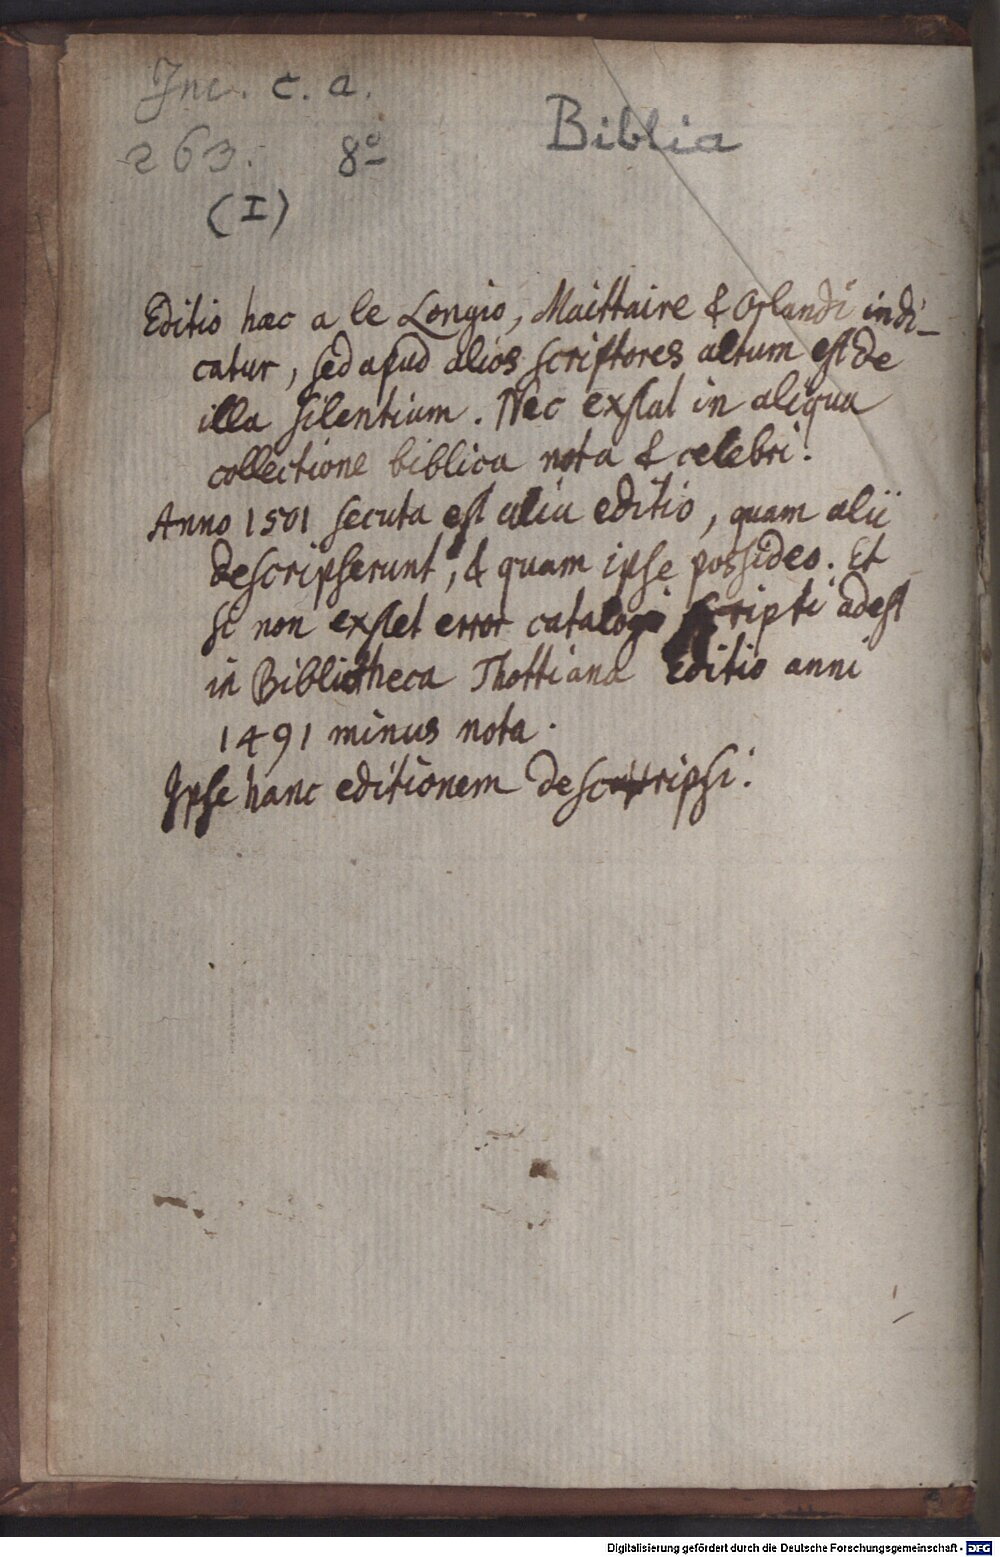 Inc. c. a.
263. 8º
(I)
Biblia
Editio hac a le Longio, Maittaire & Orlandi indi-
catur, sed apud alios scriptores altum est de
illa silentium. Nec exstat in aliqua
collectione biblica nota & celebri.
Anno 1501 secuta est alia editio, quam alii
descripserunt, & quam ipse possideo. Et
si non exstet error catalogi scripti adest
in Bibliotheca Thottiana Editio anni
1491 minus nota.
Ipse hanc editionem descripsi.
Digitalisierung gefördert durch die Deutsche Forschungsgemeinschaft - DFG